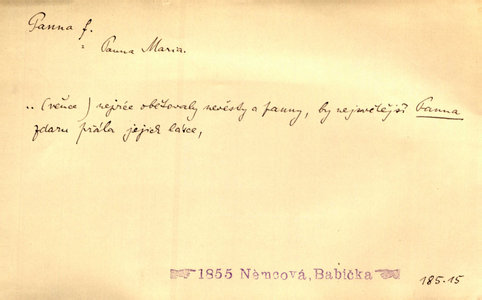 Panna f.
= Panna Maria.
.. (věnce) nejvíce obětovaly nevěsty a panny, by nejsvětější Panna
zdaru přála jejich lásce,
1855 Němcová, Babička
185.15